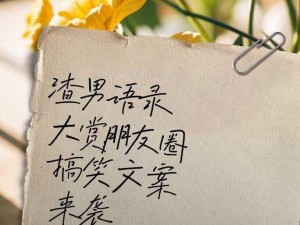 渣男语录
大赏朋友圈
搞笑文案
来袭